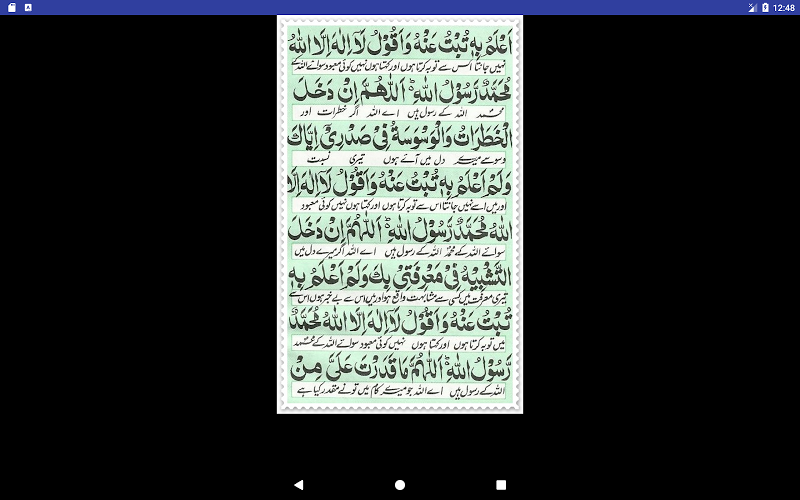 12:48
اَعْلَمُ بِهٖ تُبْتُ عَنْهُ وَاَقُوْلُ لَآ اِلٰهَ اِلَّا اللّٰهُ
نہیں جانتا اس سے توبہ کرتا ہوں اور کہتا ہوں نہیں کوئی معبود سوائے اللہ کے
مُحَمَّدٌ رَّسُوْلُ اللّٰهِ ؕ اَللّٰهُمَّ اِنْ دَخَلَ
محمد اللہ کے رسول ہیں اے اللہ اگر خطرات اور
الْخَطَرَاتُ وَالْوَسْوَسَةُ فِيْ صَدْرِيْ اِيَّاكَ
وسوسے میرے دل میں آئے ہوں تیری نسبت
وَلَمْ اَعْلَمْ بِهٖ تُبْتُ عَنْهُ وَاَقُوْلُ لَآ اِلٰهَ اِلَّا
اور میں اسے نہیں جانتا اس سے توبہ کرتا ہوں اور کہتا ہوں نہیں کوئی معبود
اللّٰهُ مُحَمَّدٌ رَّسُوْلُ اللّٰهِ ؕ اَللّٰهُمَّ اِنْ دَخَلَ
سوائے اللہ کے محمد اللہ کے رسول ہیں اے اللہ اگر میرے دل میں
التَّشْبِيْهُ فِيْ مَعْرِفَتِيْ بِكَ وَلَمْ اَعْلَمْ بِهٖ
تیری معرفت میں کسی سے مشابہت واقع ہو اور میں اس سے بے خبر ہوں اس سے
تُبْتُ عَنْهُ وَاَقُوْلُ لَآ اِلٰهَ اِلَّا اللّٰهُ مُحَمَّدٌ
میں توبہ کرتا ہوں اور کہتا ہوں نہیں کوئی معبود سوائے اللہ کے محمد
رَّسُوْلُ اللّٰهِ ؕ اَللّٰهُمَّ مَا قَدَّرْتَ عَلَيَّ مِنْ
اللہ کے رسول ہیں اے اللہ جو میرے کام میں تو نے مقدر کیا ہے